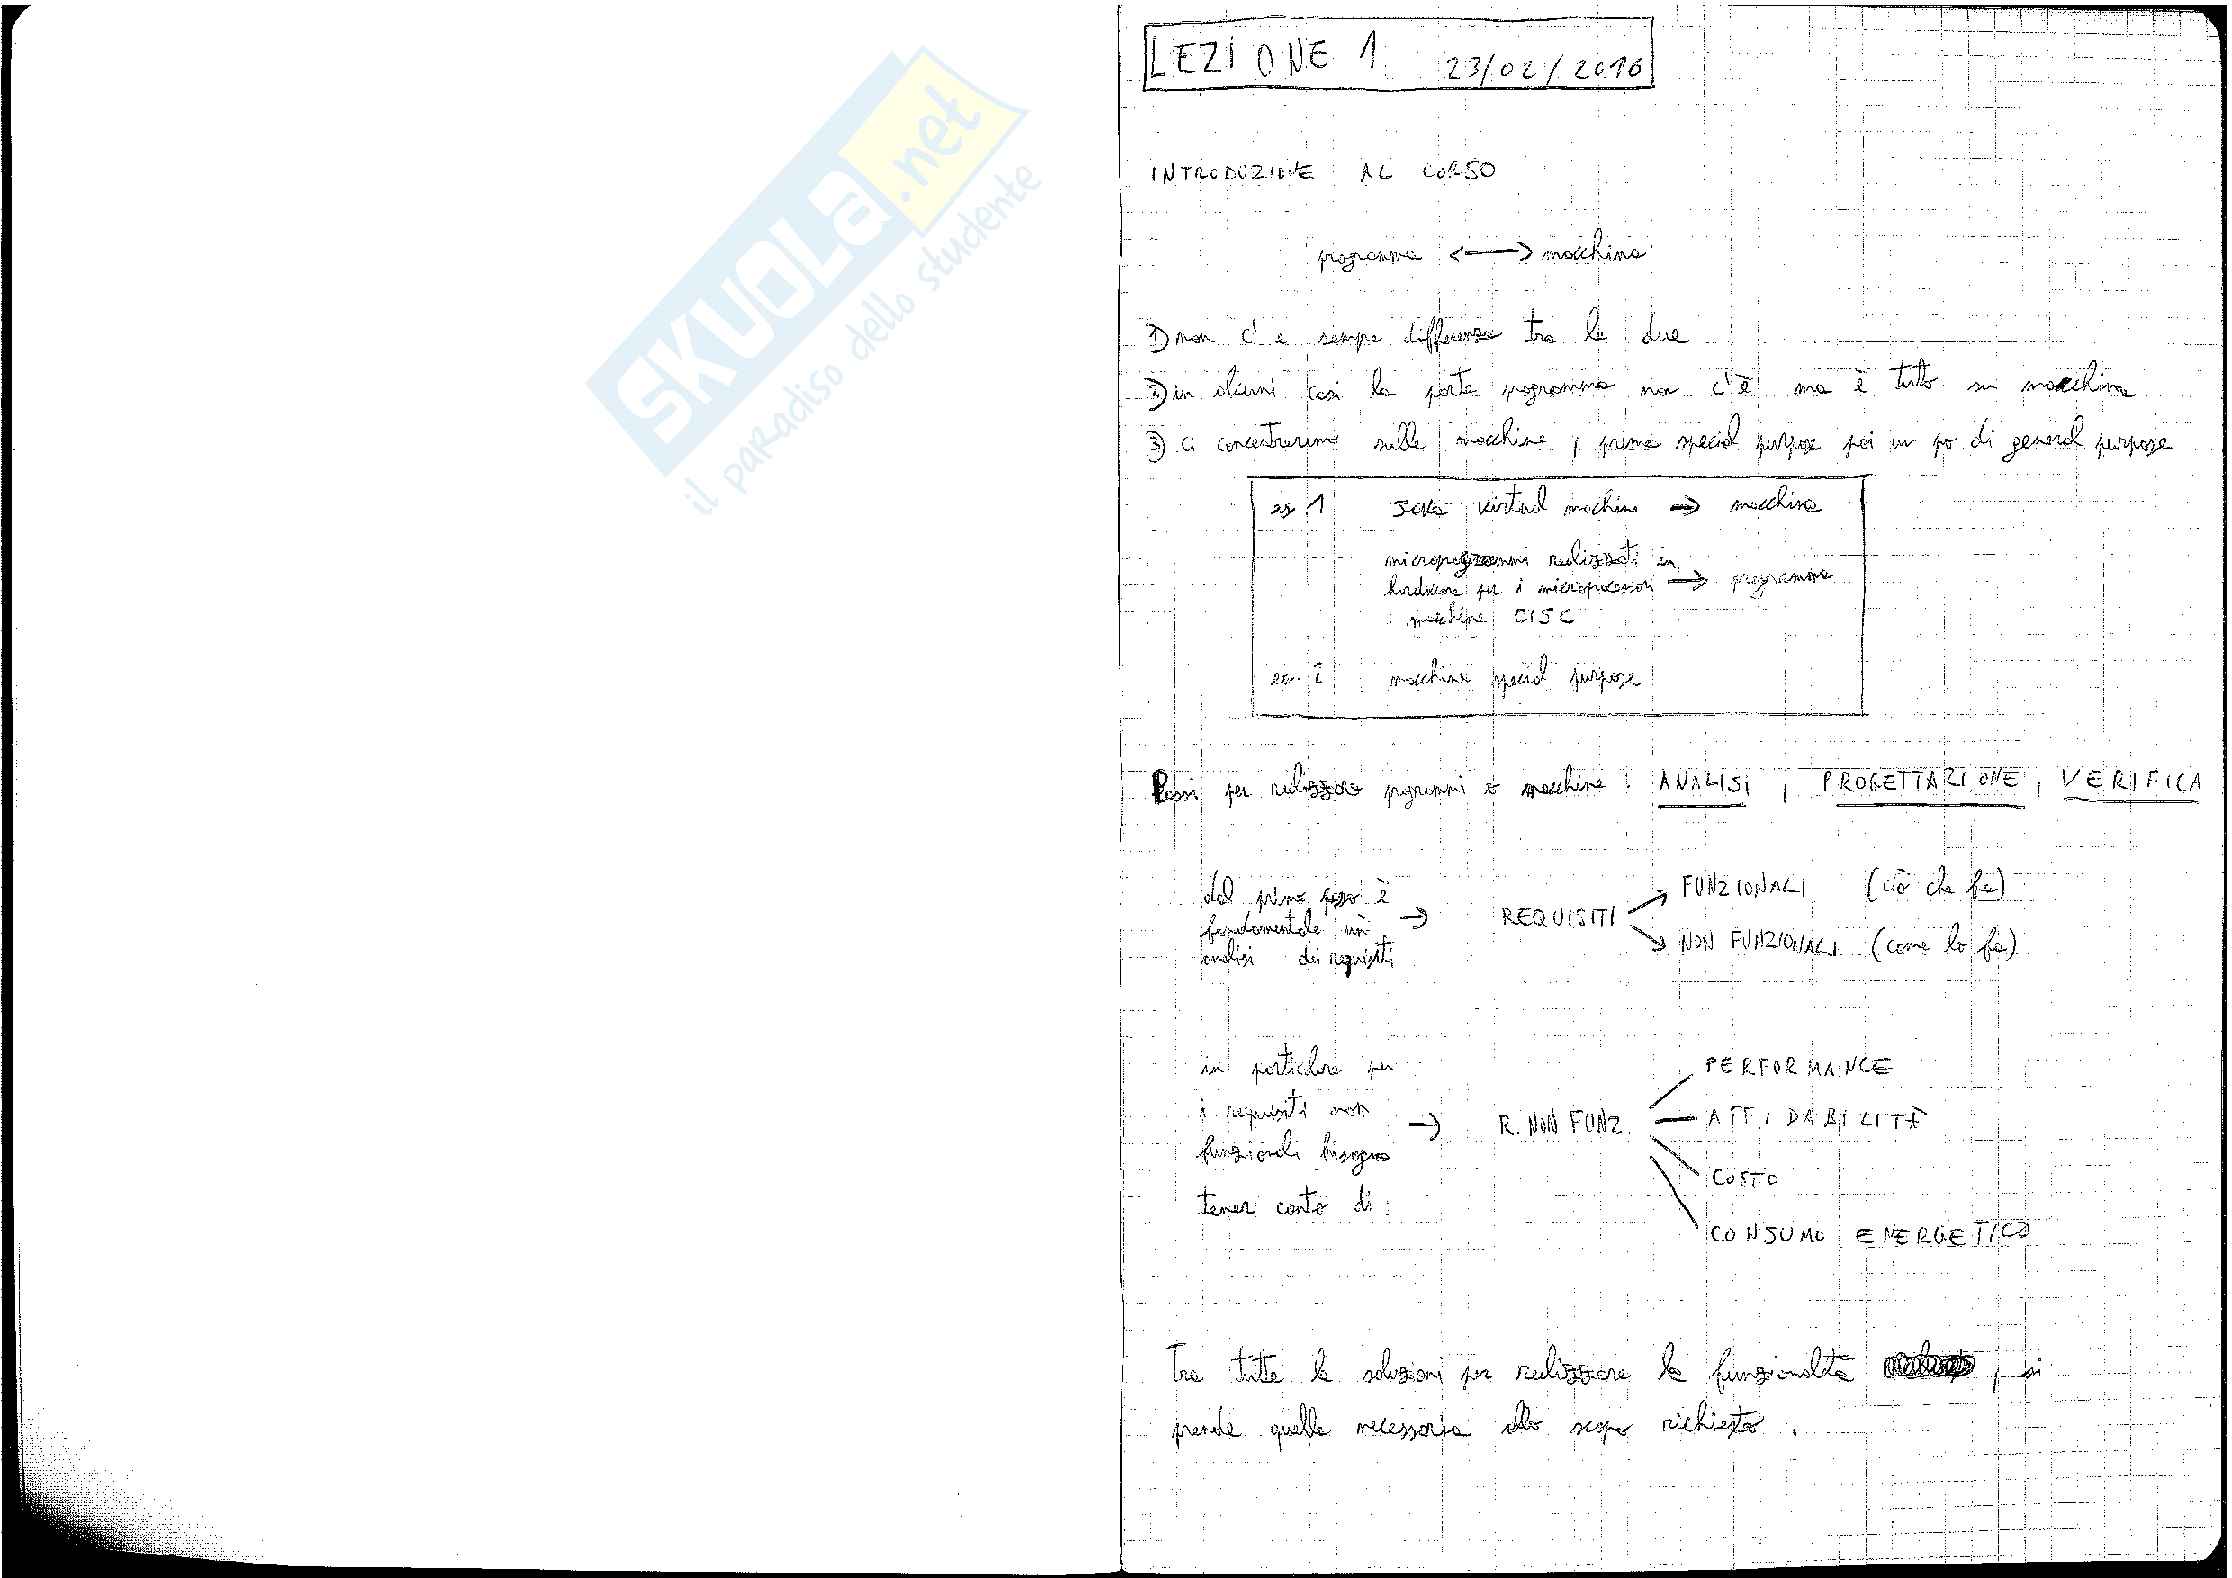 SKUOLA.net
il paradiso dello studente
LEZIONE 1 23/02/2016
INTRODUZIONE AL CORSO
programma <—> macchina
1) non c'è sempre differenza tra le due
2) in alcuni casi la parte programma non c'è ma è tutto su macchina
3) ci concentreremo sulle macchine, prima special purpose poi un po di general purpose
es 1 Java virtual machine → macchina
microprogrammi realizzati in
hardware per i microprocessori → programma
macchine CISC
es. 2 macchine special purpose
Passi per realizzare programmi e macchine: ANALISI, PROGETTAZIONE, VERIFICA
dal primo passo è
fondamentale un'
analisi dei requisiti
→ REQUISITI
FUNZIONALI (ciò che fa)
NON FUNZIONALI (come lo fa)
in particolare per
i requisiti non
funzionali bisogna
tener conto di
→ R. NON FUNZ.
PERFORMANCE
AFFIDABILITÀ
COSTO
CONSUMO ENERGETICO
Tra tutte le soluzioni per realizzare le funzionalità, si
prende quella necessaria allo scopo richiesto.